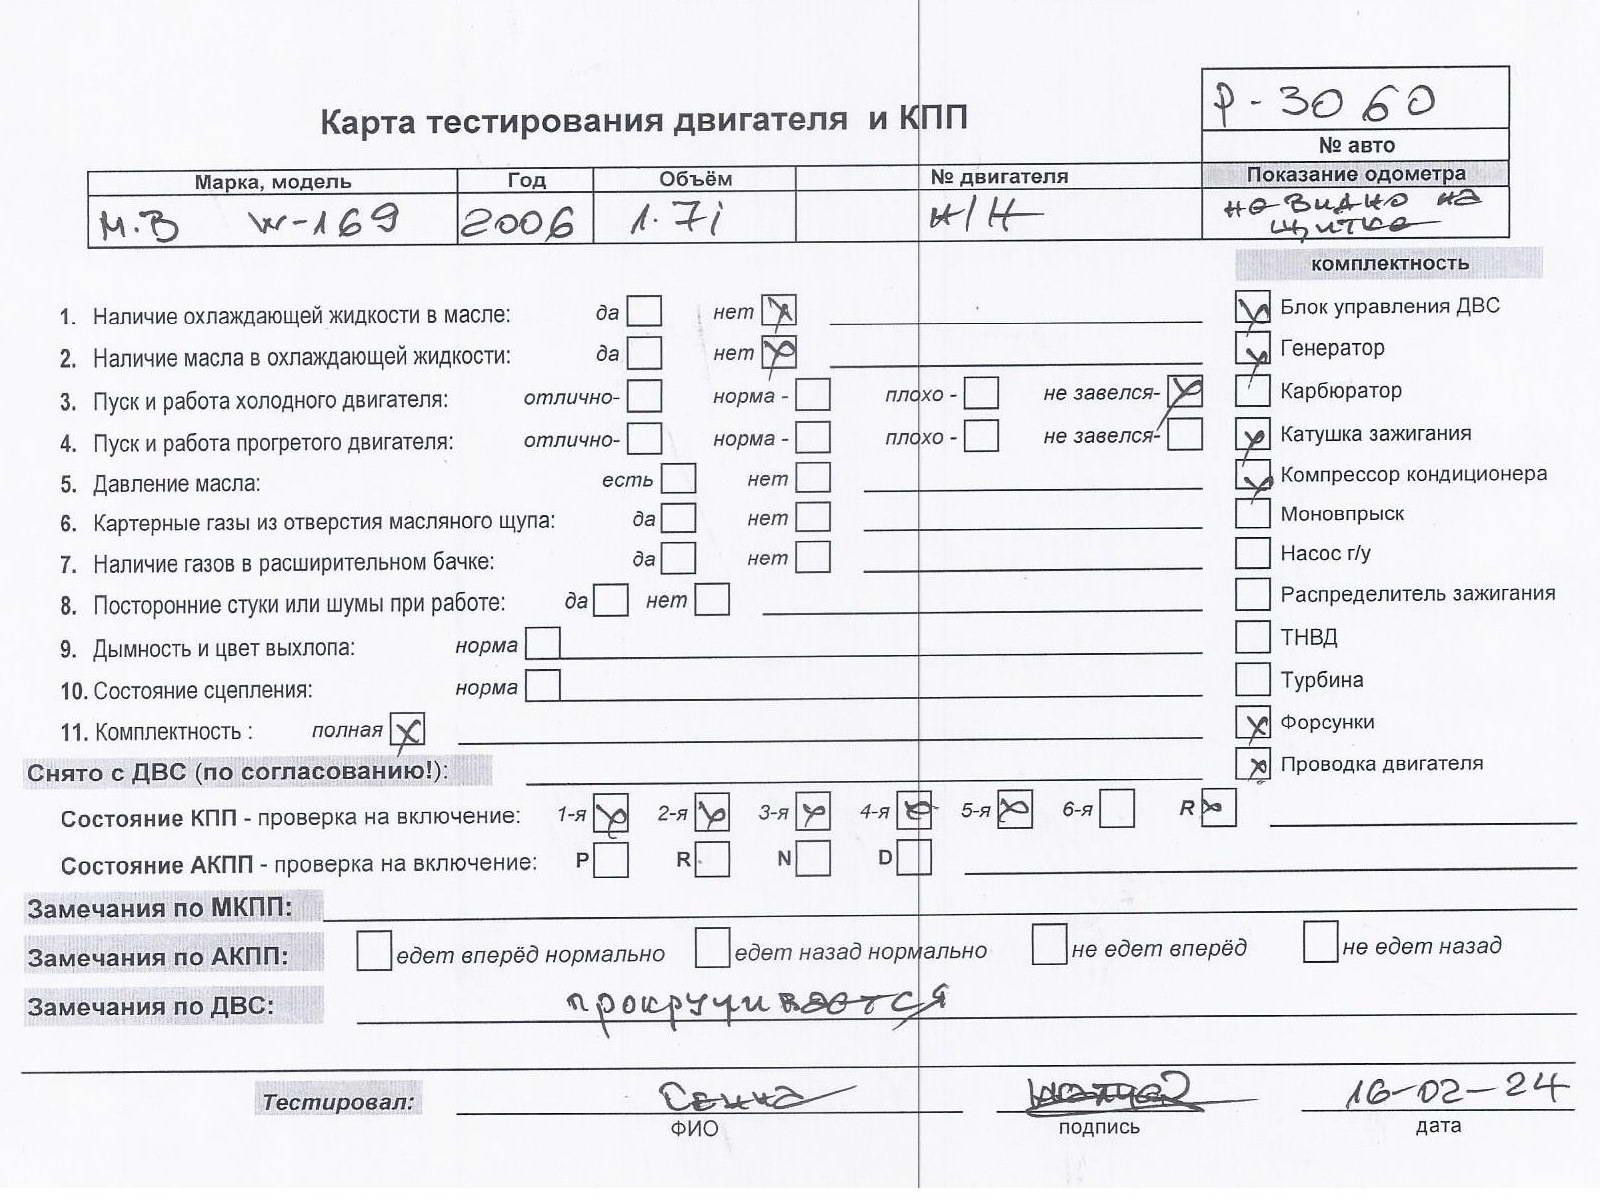 Р-3060
Карта тестирования двигателя и КПП
№ авто
Марка, модель Год Объём № двигателя Показание одометра
М.В W-169 2006 1.7i Н/Н не видно на
щитке
комплектность
1. Наличие охлаждающей жидкости в масле: да нет Блок управления ДВС
2. Наличие масла в охлаждающей жидкости: да нет Генератор
3. Пуск и работа холодного двигателя: отлично- норма - плохо - не завелся- Карбюратор
4. Пуск и работа прогретого двигателя: отлично- норма - плохо - не завелся- Катушка зажигания
5. Давление масла: есть нет Компрессор кондиционера
6. Картерные газы из отверстия масляного щупа: да нет Моновпрыск
7. Наличие газов в расширительном бачке: да нет Насос г/у
8. Посторонние стуки или шумы при работе: да нет Распределитель зажигания
9. Дымность и цвет выхлопа: норма ТНВД
10. Состояние сцепления: норма Турбина
11. Комплектность : полная Форсунки
Снято с ДВС (по согласованию!): Проводка двигателя
Состояние КПП - проверка на включение: 1-я 2-я 3-я 4-я 5-я 6-я R
Состояние АКПП - проверка на включение: P R N D
Замечания по МКПП:
Замечания по АКПП: едет вперёд нормально едет назад нормально не едет вперёд не едет назад
Замечания по ДВС: прокручивается
Тестировал: Сенна 16-02-24
ФИО подпись дата